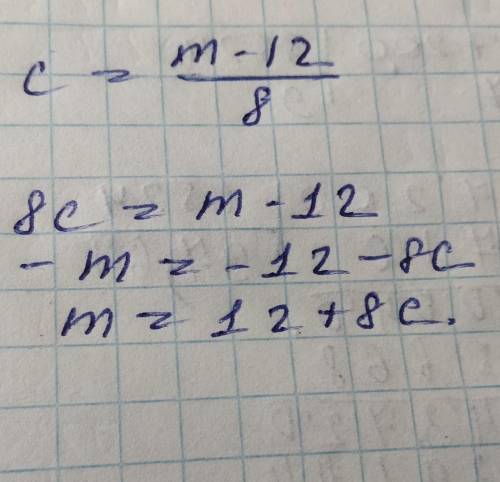 c = m - 12 / 8
8c = m - 12
- m = - 12 - 8c
m = 12 + 8c.